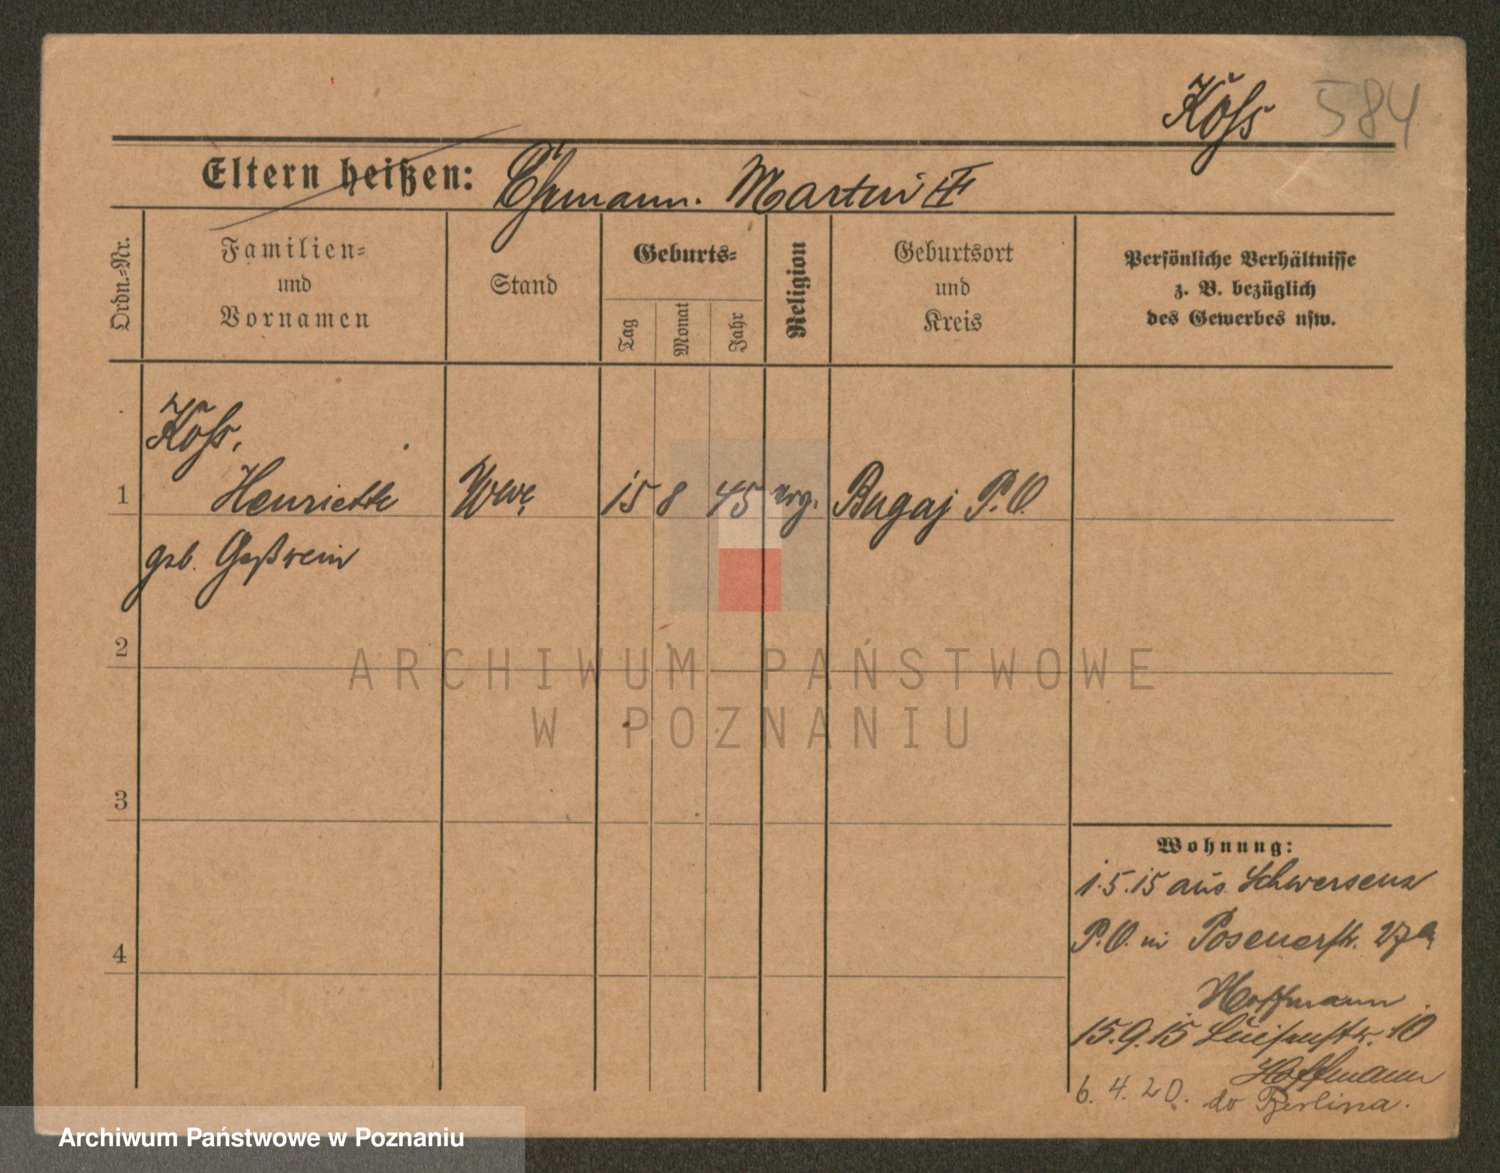 Koss 584
Eltern heißen: Ehemann. Martin
Ordn.-Nr.
Familien-
und
Vornamen
Stand
Geburts-
Tag
Monat
Jahr
Religion
Geburtsort
und
Kreis
Persönliche Verhältnisse
z. B. bezüglich
des Gewerbes usw.
Koss,
1 Henriette Wwe 15 8 45 evg. Bugaj P.O.
geb. Geßwein
2
ARCHIWUM PAŃSTWOWE
W POZNANIU
3
Wohnung:
1.5.15 aus Schwersenz
P.O. in Posenerstr.
4
Hoffmann
15.9.15 Luisenstr. 10
Hoffmann
6.4.20. do Berlina.
Archiwum Państwowe w Poznaniu